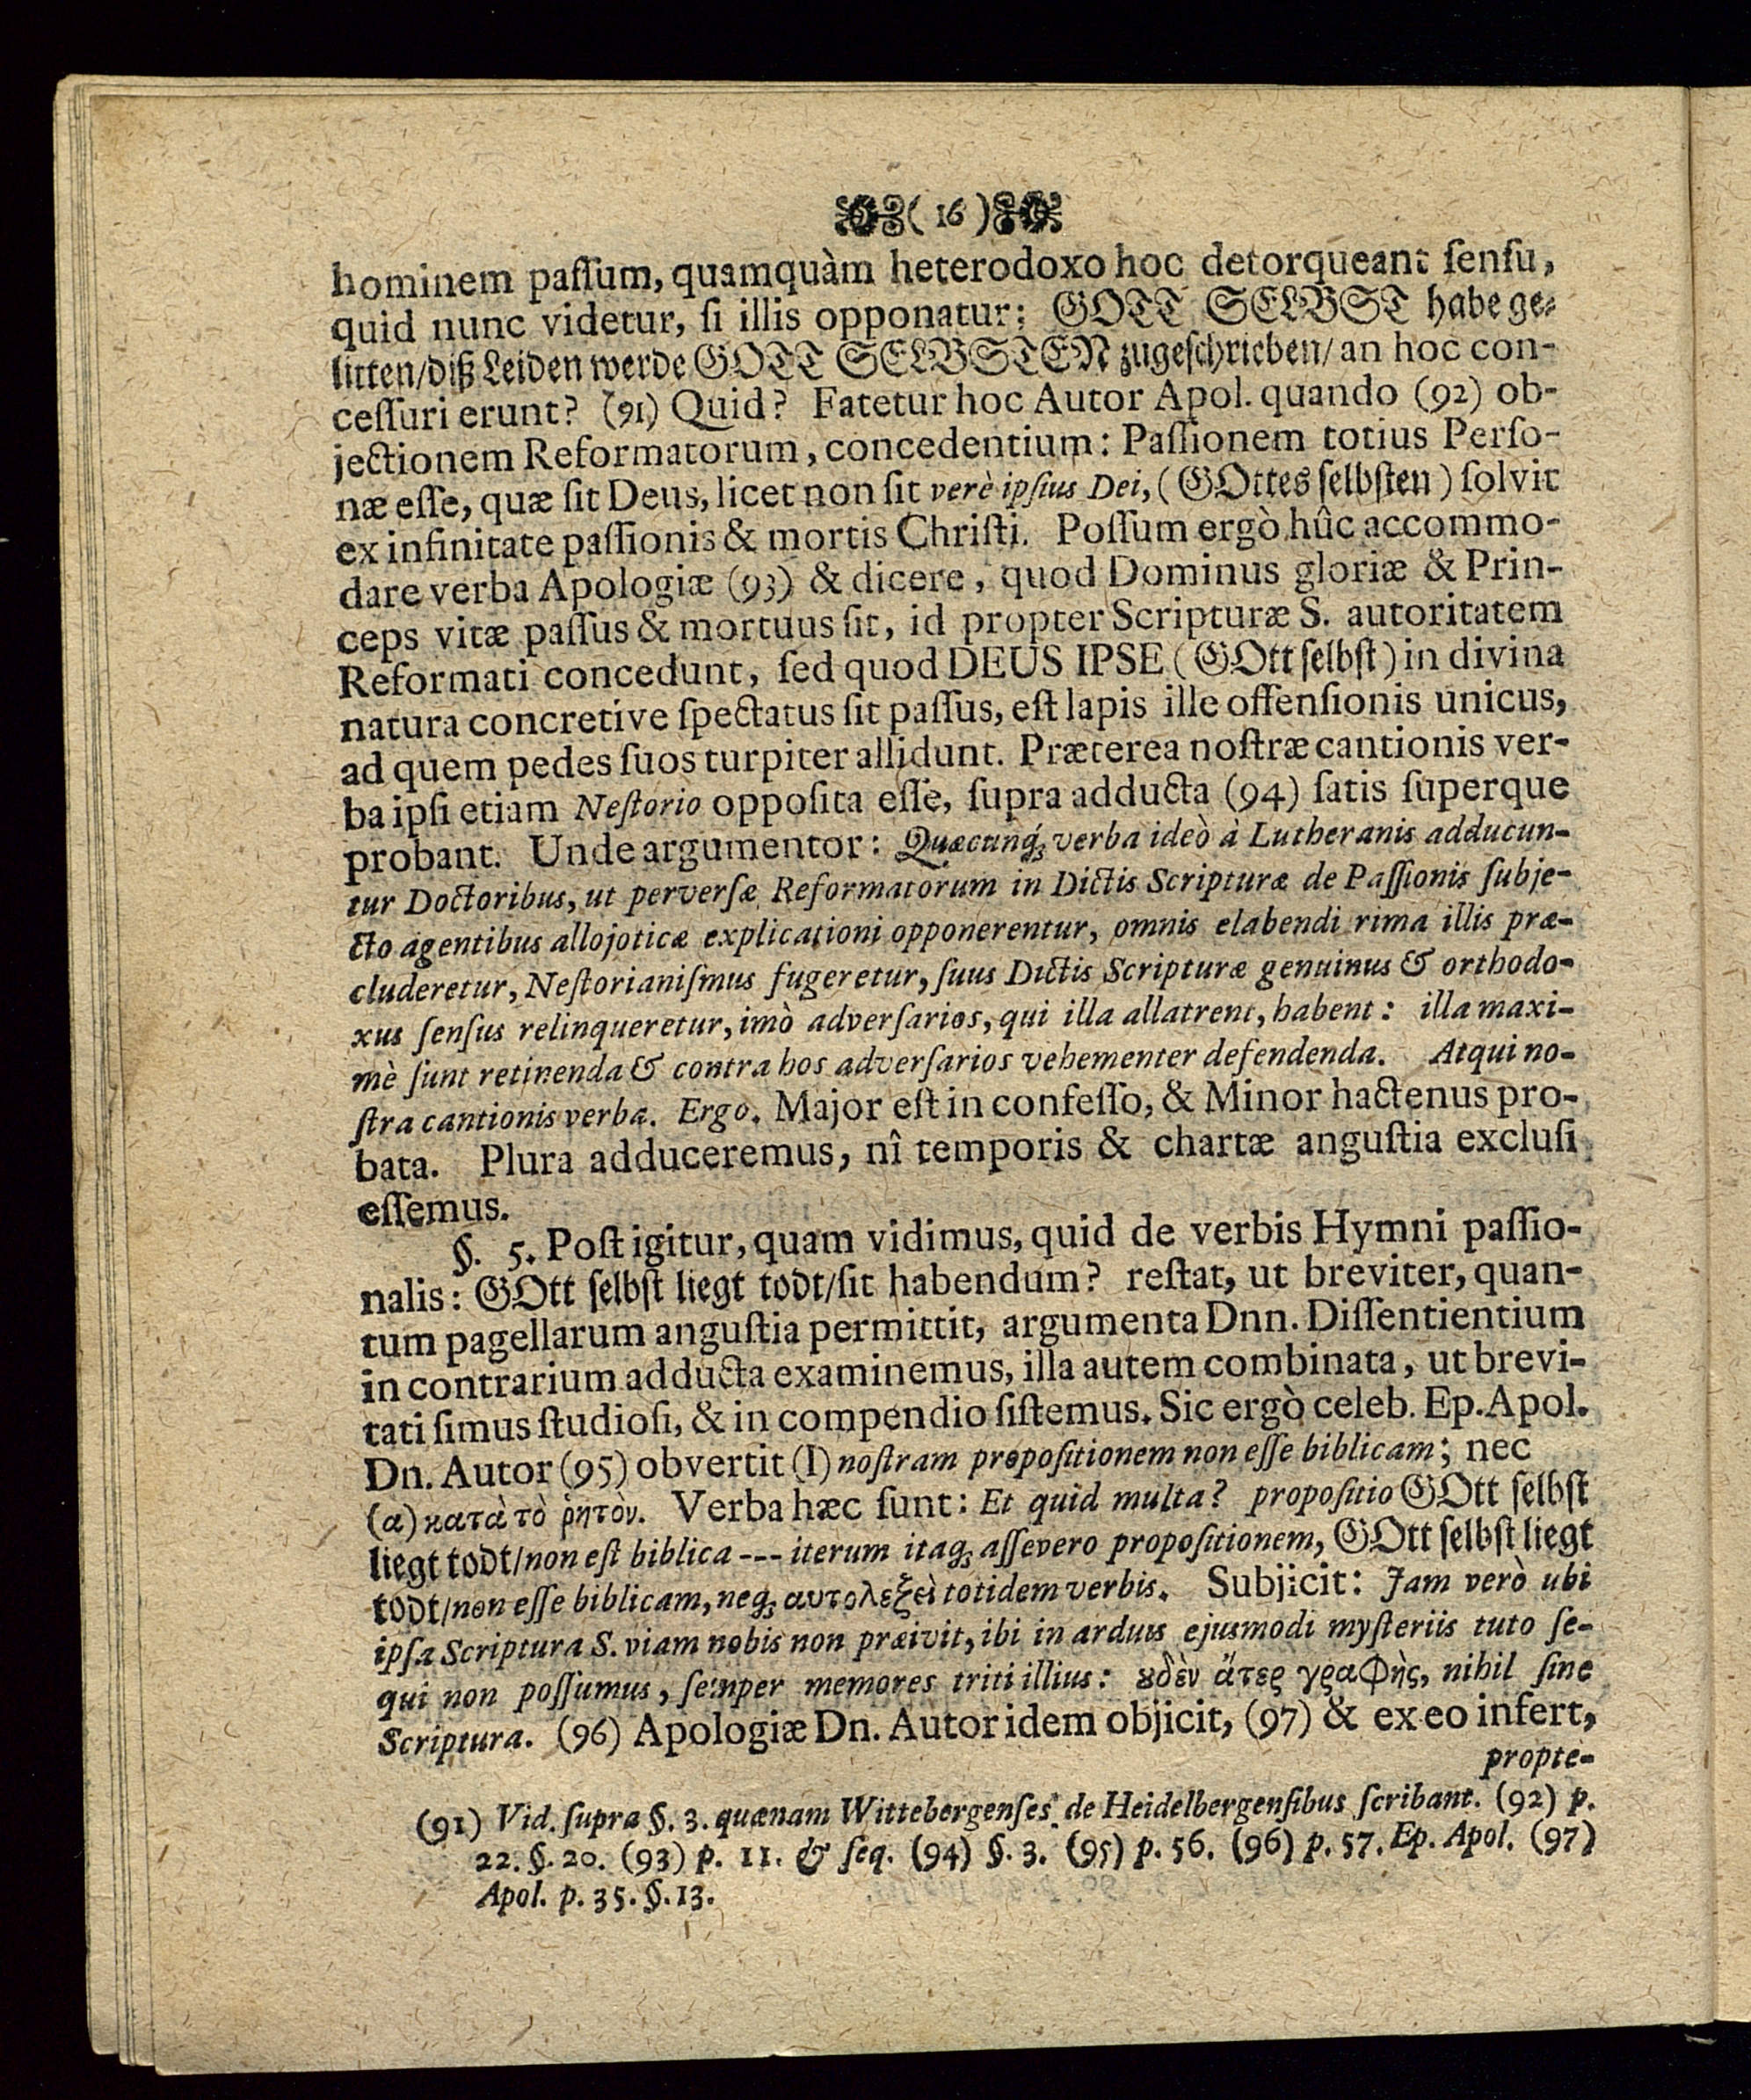 ( 16 )
hominem paſſum, quamquàm heterodoxo hoc detorqueant ſenſu,
quid nunc videtur, ſi illis opponatur: GOTT SELBST habe ge-
litten/diß Leiden werde GOTT SELBSTEN zugeſchrieben/ an hoc con-
ceſſuri erunt? (91) Quid? Fatetur hoc Autor Apol. quando (92) ob-
jectionem Reformatorum, concedentium: Paſſionem totius Perſo-
næ eſſe, quæ ſit Deus, licet non ſit verè ipſius Dei, (GOttes ſelbſten) ſolvit
ex infinitate paſſionis & mortis Chriſti. Poſſum ergò hûc accommo-
dare verba Apologiæ (93) & dicere, quod Dominus gloriæ & Prin-
ceps vitæ paſſus & mortuus ſit, id propter Scripturæ S. autoritatem
Reformati concedunt, ſed quod DEUS IPSE (GOtt ſelbſt) in divina
natura concretive ſpectatus ſit paſſus, eſt lapis ille offenſionis unicus,
ad quem pedes ſuos turpiter allidunt. Præterea noſtræ cantionis ver-
ba ipſi etiam Neſtorio oppoſita eſſe, ſupra adducta (94) ſatis ſuperque
probant. Unde argumentor: Quæcunq́; verba ideò à Lutheranis adducun-
tur Doctoribus, ut perverſæ Reformatorum in Dictis Scripturæ de Paſſionis ſubje-
cto agentibus allojoticæ explicationi opponerentur, omnis elabendi rima illis præ-
cluderetur, Neſtorianiſmus fugeretur, ſuus Dictis Scripturæ genuinus & orthodo-
xus ſenſus relinqueretur, imò adverſarios, qui illa allatrent, habent: illa maxi-
mè ſunt retinenda & contra hos adverſarios vehementer defendenda. Atqui no-
ſtra cantionis verba. Ergo. Major eſt in confeſſo, & Minor hactenus pro-
bata. Plura adduceremus, nî temporis & chartæ anguſtia excluſi
eſſemus.
§. 5. Poſt igitur, quam vidimus, quid de verbis Hymni paſſio-
nalis: GOtt ſelbſt liegt todt/ſit habendum? reſtat, ut breviter, quan-
tum pagellarum anguſtia permittit, argumenta Dnn. Diſſentientium
in contrarium adducta examinemus, illa autem combinata, ut brevi-
tati ſimus ſtudioſi, & in compendio ſiſtemus. Sic ergò celeb. Ep. Apol.
Dn. Autor (95) obvertit (I) noſtram propoſitionem non eſſe biblicam; nec
(α) κατὰ τὸ ῥητὸν. Verba hæc ſunt: Et quid multa? propoſitio GOtt ſelbſt
liegt todt/non eſt biblica --- iterum itaq; aſſevero propoſitionem, GOtt ſelbſt liegt
todt/non eſſe biblicam, neq; αυτολεξεὶ totidem verbis. Subjicit: Jam verò ubi
ipſa Scriptura S. viam nobis non præivit, ibi in arduis ejusmodi myſteriis tuto ſe-
qui non poſſumus, ſemper memores triti illius: ȣδὲν ἄτερ γραφὴς, nihil ſine
Scriptura. (96) Apologiæ Dn. Autor idem objicit, (97) & ex eo infert,
propte-
(91) Vid. ſupra §. 3. quænam Wittebergenſes de Heidelbergenſibus ſcribant. (92) p.
22. §. 20. (93) p. 11. & ſeq. (94) §. 3. (95) p. 56. (96) p. 57. Ep. Apol. (97)
Apol. p. 35. §. 13.